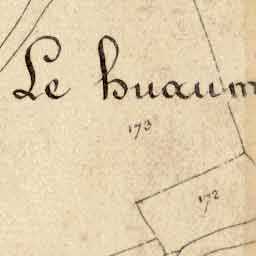 Le huaum
173
172